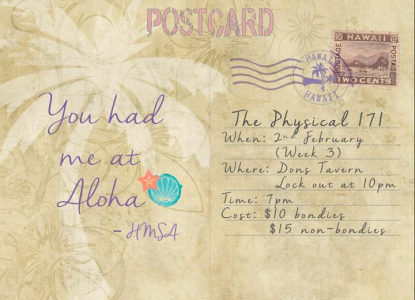 POSTCARD
HAWAII
POSTAGE
POSTAGE
TWO CENTS
HAWAII
HAWAII
You had
me at
Aloha
- HMSA
The Physical 171
When: 2nd February
(Week 3)
Where: Dons Tavern
Lock out at 10pm
Time: 7pm
Cost: $10 bondies
$15 non-bondies